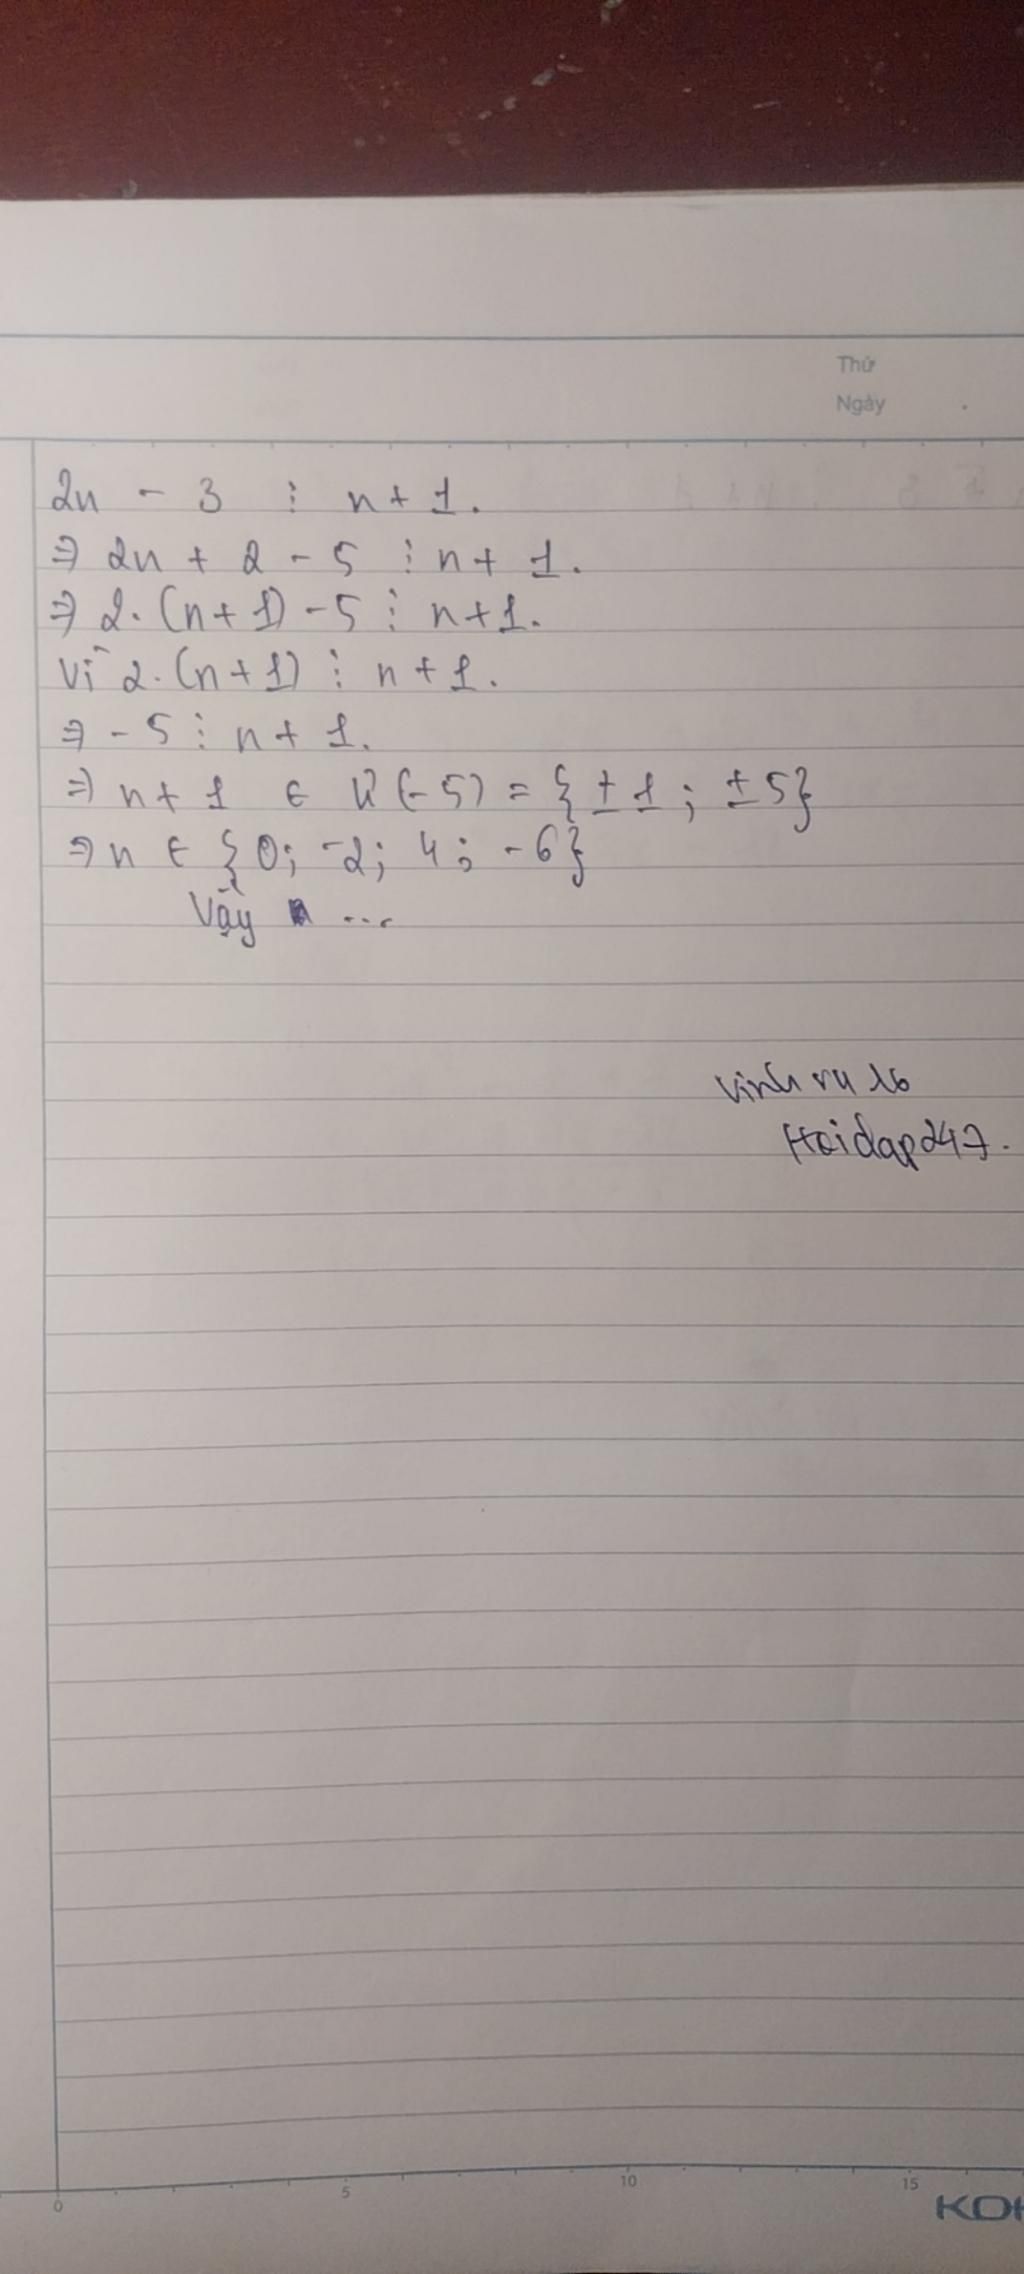 Thứ
Ngày
2n - 3 ⋮ n + 1.
⇒ 2n + 2 - 5 ⋮ n + 1.
⇒ 2. (n + 1) - 5 ⋮ n + 1.
Vì 2. (n + 1) ⋮ n + 1.
⇒ - 5 ⋮ n + 1.
⇒ n + 1 ∈ Ư (- 5) = { ± 1 ; ± 5}
⇒ n ∈ { 0; -2; 4; -6}
Vậy n ...
Hoidap247.
0 5 10 15